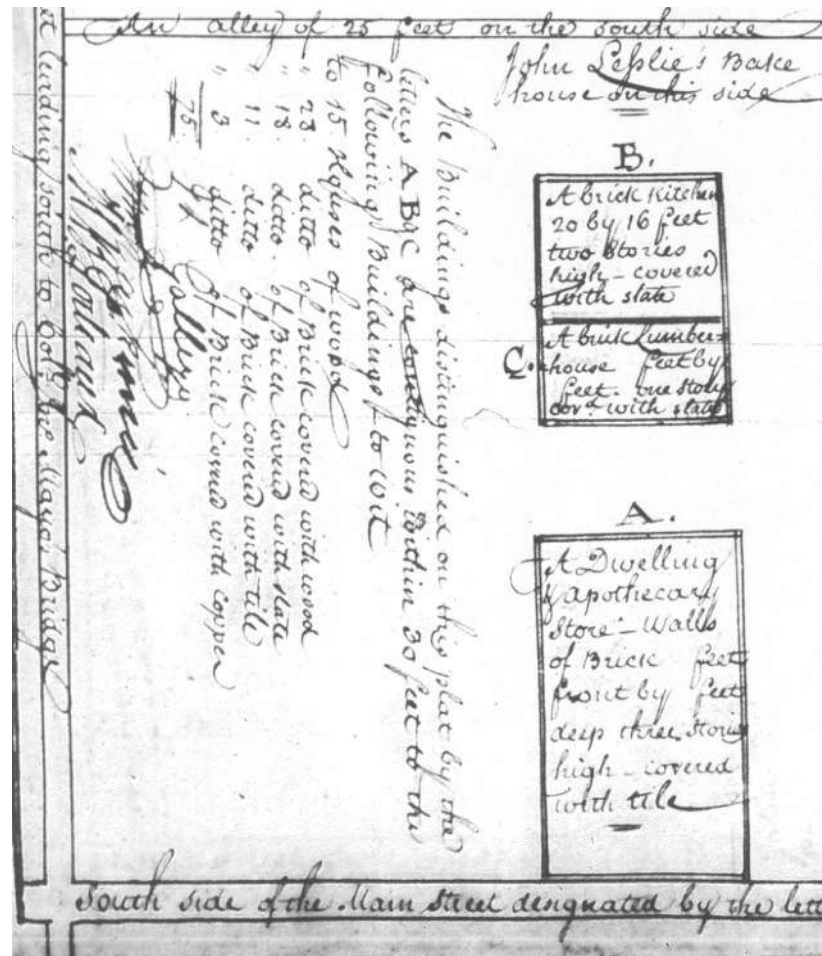 An alley of 25 feet on the south side
John Leslie's Bake
house on this side
B.
A brick Kitchen
20 by 16 feet
two stories
high - covered
with slate
C.
A brick Lumber=
house feet by
feet. one story
cov.d with slate
A.
A Dwelling
& Apothecary
Store - Walls
of Brick feet
front by feet
deep three stories
high - covered
with tile
The Buildings distinguished on this plat by the
letters A B & C are contiguous within 30 feet to the
following Buildings to wit
to 15 Houses of wood
" 28. ditto of Brick covered with wood
" 18. ditto. of Brick covered with slate
" 11. ditto of Brick covered with tile
" 3 ditto of Brick covered with copper
75
leading south to Bridge
South side of the Main street designated by the lett